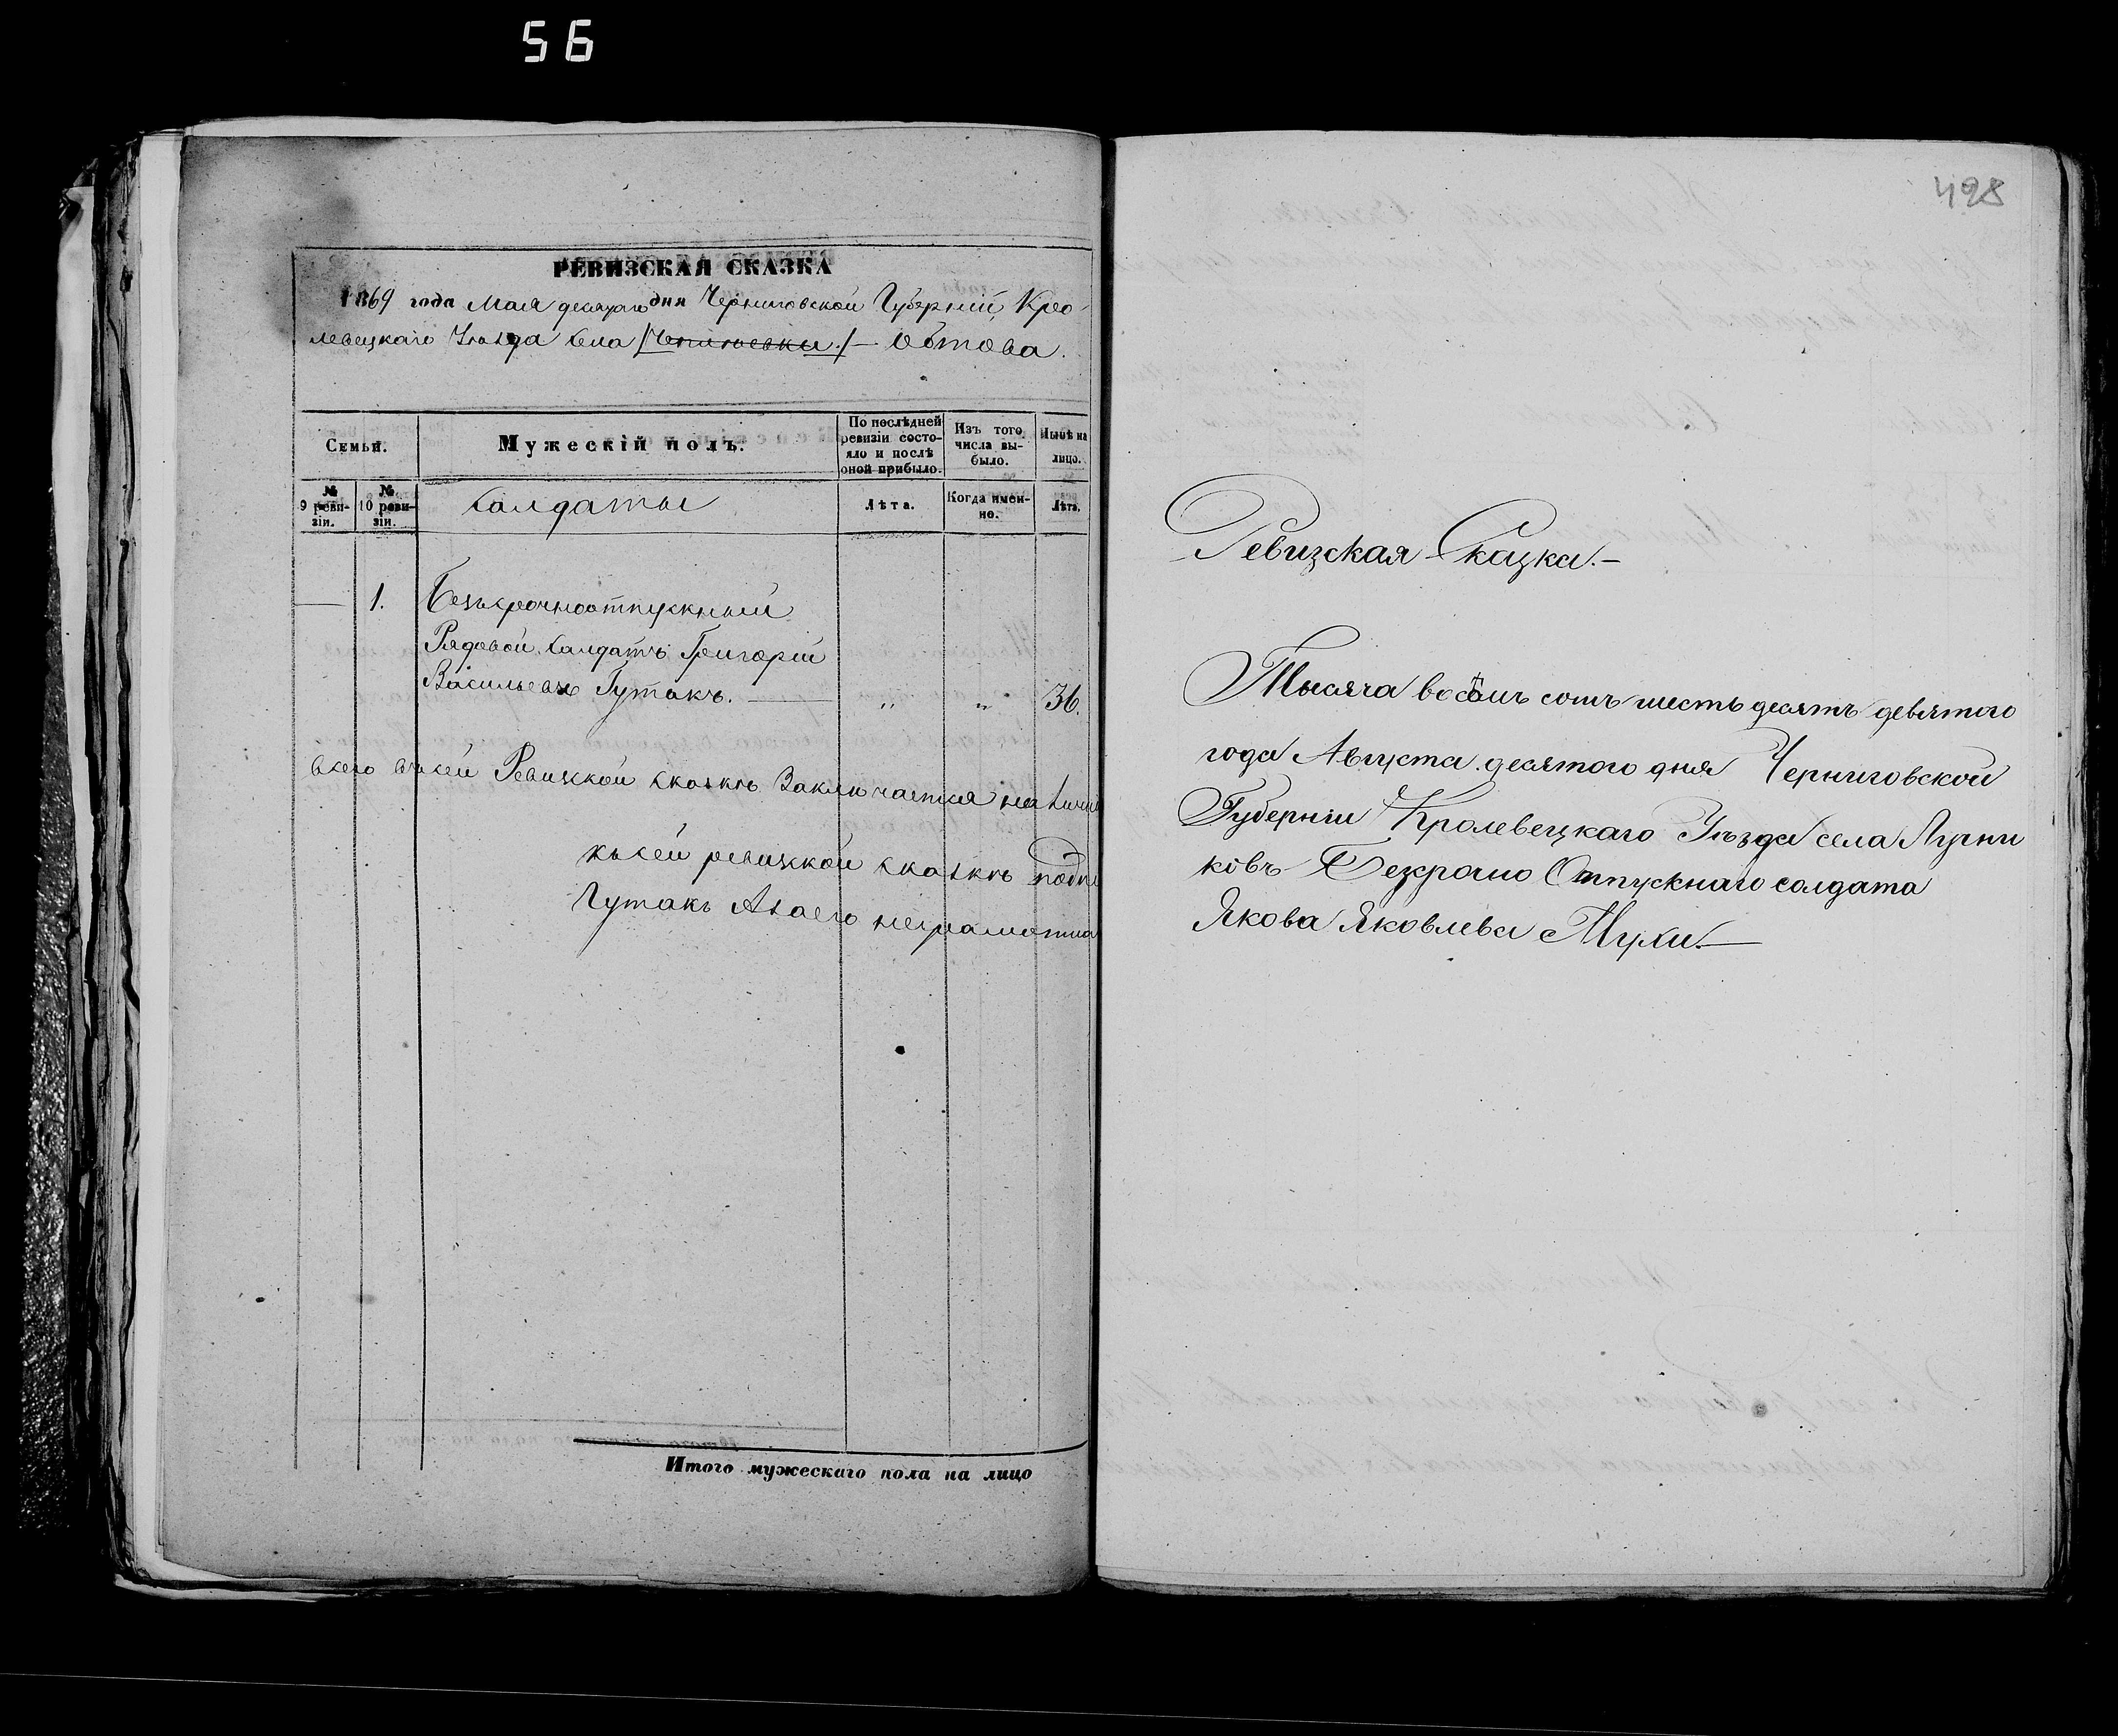 56
РЕВИЗСКАЯ СКАЗКА
1869 года Мая десятого дня Черниговской Губерніи, Кро-
левецкаго Уѣзда Села Обтова.
Семьи.
Мужескій полъ.
По послѣдней ревизіи состояло и послѣ оной прибыло.
Изъ того числа выбыло.
Нынѣ на лицо.
№ 9 ревизіи.
№ 10 ревизіи.
Салдаты
Лѣта.
Когда именно.
Лѣта.
1. Безсрочноотпускный
Рядовой Салдатъ Григорій
Васильевъ Гутакъ. — „ „ 36.
Всего въ сей Ревизкой сказкѣ Заключается на личн
къ сей ревизкой сказкѣ подп
Гутакъ А за его неграмотна
Итого мужескаго пола на лицо
498
Ревизская Сказка.—
Тысяча восемъ сотъ шесть десятъ девятого
года Августа десятого дня Черниговской
Губерніи Кролевецкаго Уѣзда села Лугни
ковъ Безрочно Отпускнаго солдата
Якова Яковлева Мухи.—